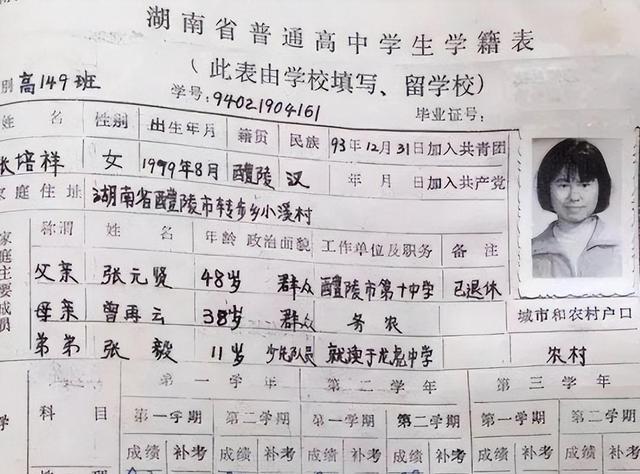 湖南省普通高中学生学籍表
（此表由学校填写、留学校）
别 高149班
学号:94021904161 毕业证号:
姓 名 性别 出生年月 籍贯 民族 93年12月31日加入共青团
张培祥 女 1979年8月 醴陵 汉 年 月 日加入共产党
家庭住址 湖南省醴陵市转步乡小溪村
家庭主要成员 称谓 姓 名 年龄 政治面貌 工作单位及职务 备 注
父亲 张元贤 48岁 群众 醴陵市第十中学 已退休
母亲 曾再云 38岁 群众 务农
弟弟 张毅 11岁 少先队员 就读于龙虎中学
城市和农村户口
农村
第 一 学 年 第 二 学 年 第 三 学 年
学 科 目 第一学期 第二学期 第一学期 第二学期 第一学期 第二学期
成绩 补考 成绩 补考 成绩 补考 成绩 补考 成绩 补考 成绩